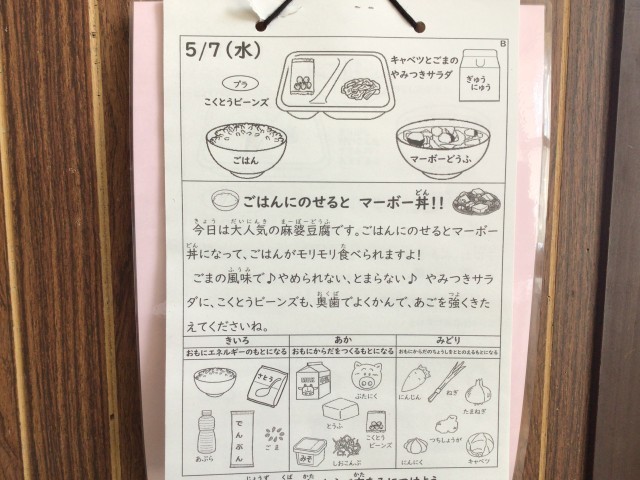 B
5/7(水)
キャベツとごまの
やみつきサラダ
ぎゅう
にゅう
プラ
こくとうビーンズ
ごはん
マーボーどうふ
ごはんにのせると マーボー丼!!
どん
きょう だいにんき まーぼーどうふ
今日は大人気の麻婆豆腐です。ごはんにのせるとマーボー
どん た
丼になって、ごはんがモリモリ食べられますよ!
ふうみ
ごまの風味で♪やめられない、とまらない♪ やみつきサラ
おくば つよ
ダに、こくとうビーンズも、奥歯でよくかんで、あごを強くきた
えてくださいね。
きいろ あか みどり
おもにエネルギーのもとになる おもにからだをつくるもとになる おもにからだのちょうしをととのえるもとになる
さとう
ぶたにく
にんじん
ねぎ
たまねぎ
とうふ
でんぷん
あぶら
ごま
みそ
しおこんぶ
こくとう
ビーンズ
つちしょうが
にんにく
キャベツ